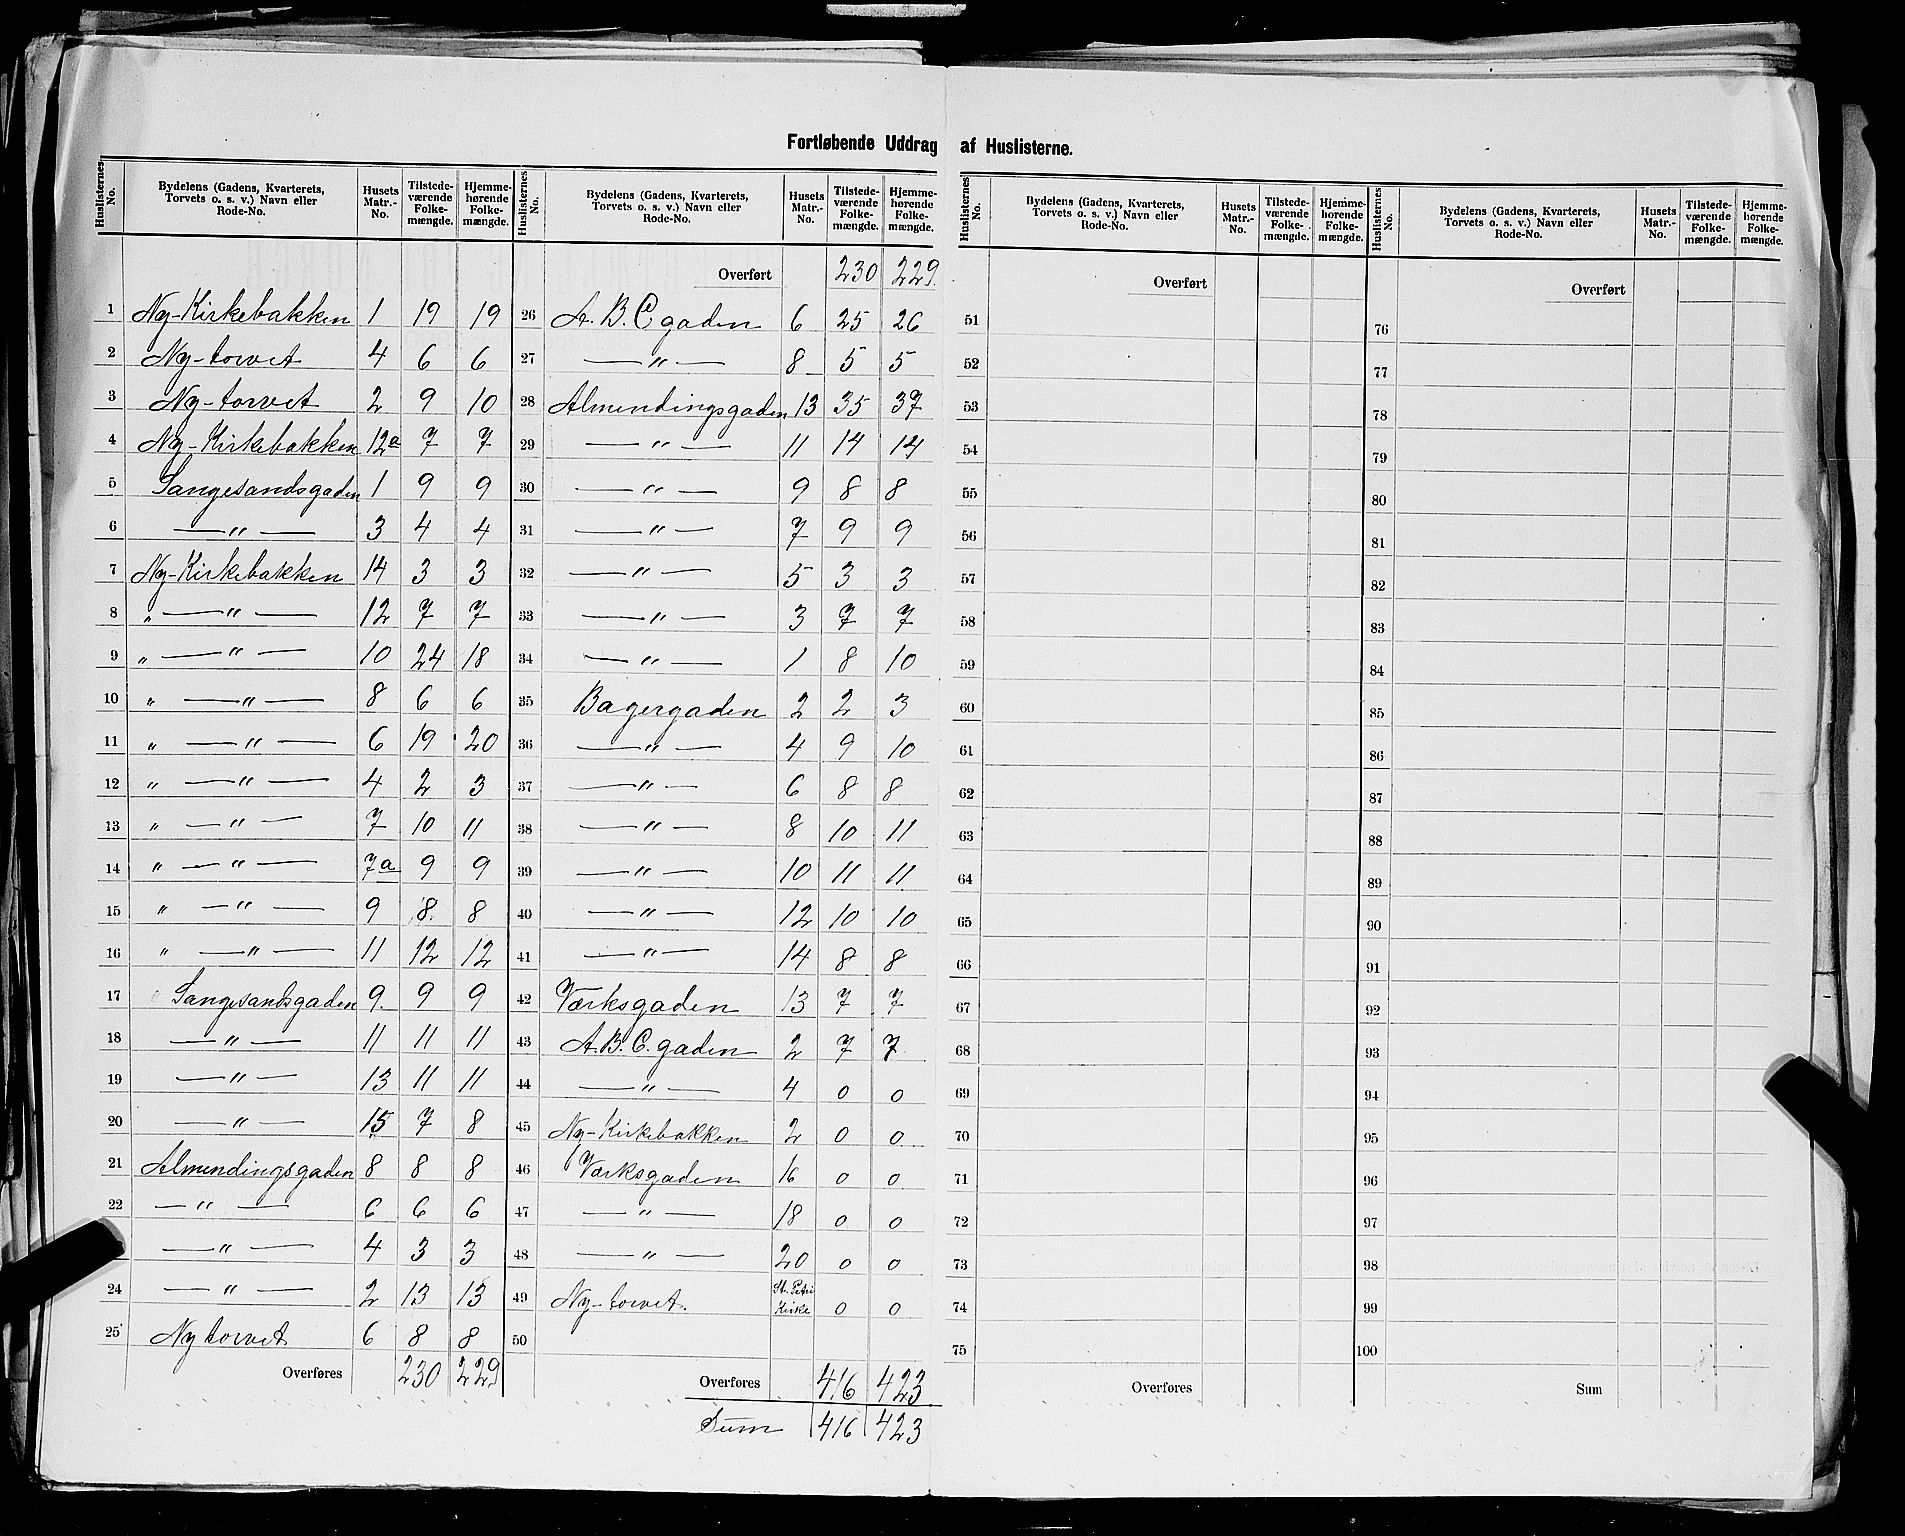 Fortløbende Uddrag af Huslisterne.
Huslisternes No. | Bydelens (Gadens, Kvarterets, Torvets o. s. v.) Navn eller Rode-No. | Husets Matr.-No. | Tilstedeværende Folkemængde. | Hjemmehørende Folkemængde.
1 Ny-Kirkebakken 1 19 19
2 Ny-torvet 4 6 6
3 Ny-torvet 2 9 10
4 Ny-Kirkebakken 12a 7 7
5 Langesandsgaden 1 9 9
6 — " — 3 4 4
7 Ny-Kirkebakken 14 3 3
8 " — " — 12 7 7
9 " — " — 10 24 18
10 " — " — 8 6 6
11 " — " — 6 19 20
12 " — " — 4 2 3
13 " — " — 7 10 11
14 " — " — 7a 9 9
15 " — " — 9 8 8
16 " — " — 11 12 12
17 Langesandsgaden 9 9 9
18 — " — 11 11 11
19 — " — 13 11 11
20 — " — 15 7 8
21 Almendingsgaden 8 8 8
22 — " — 6 6 6
— " — 4 3 3
24 — " — 2 13 13
25 Ny torvet 6 8 8
Overføres 230 229
Huslisternes No. | Bydelens (Gadens, Kvarterets, Torvets o. s. v.) Navn eller Rode-No. | Husets Matr.-No. | Tilstedeværende Folkemængde. | Hjemmehørende Folkemængde.
Overført 230 229
26 A. B. C gaden 6 25 26
27 — " — 8 5 5
28 Almendingsgaden 13 35 37
29 — " — 11 14 14
30 — " — 9 8 8
31 — " — 7 9 9
32 — " — 5 3 3
33 — " — 3 7 7
34 — " — 1 8 10
35 Bagergaden 2 2 3
36 — " — 4 9 10
37 — " — 6 8 8
38 — " — 8 10 11
39 — " — 10 11 11
40 — " — 12 10 10
41 — " — 14 8 8
42 Værksgaden 13 7 7
43 A. B. C. gaden 2 7 7
44 — " — 4 0 0
45 Ny-Kirkebakken 2 0 0
46 Værksgaden 16 0 0
47 — " — 18 0 0
48 — " — 20 0 0
49 Ny-torvet. St. Petri Kirke 0 0
50
Overføres 416 423
Sum 416 423
Huslisternes No. | Bydelens (Gadens, Kvarterets, Torvets o. s. v.) Navn eller Rode-No. | Husets Matr.-No. | Tilstedeværende Folkemængde. | Hjemmehørende Folkemængde.
Overført
51
52
53
54
55
56
57
58
59
60
61
62
63
64
65
66
67
68
69
70
71
72
73
74
75
Overføres
Huslisternes No. | Bydelens (Gadens, Kvarterets, Torvets o. s. v.) Navn eller Rode-No. | Husets Matr.-No. | Tilstedeværende Folkemængde. | Hjemmehørende Folkemængde.
Overført
76
77
78
79
80
81
82
83
84
85
86
87
88
89
90
91
92
93
94
95
96
97
98
99
100
Sum